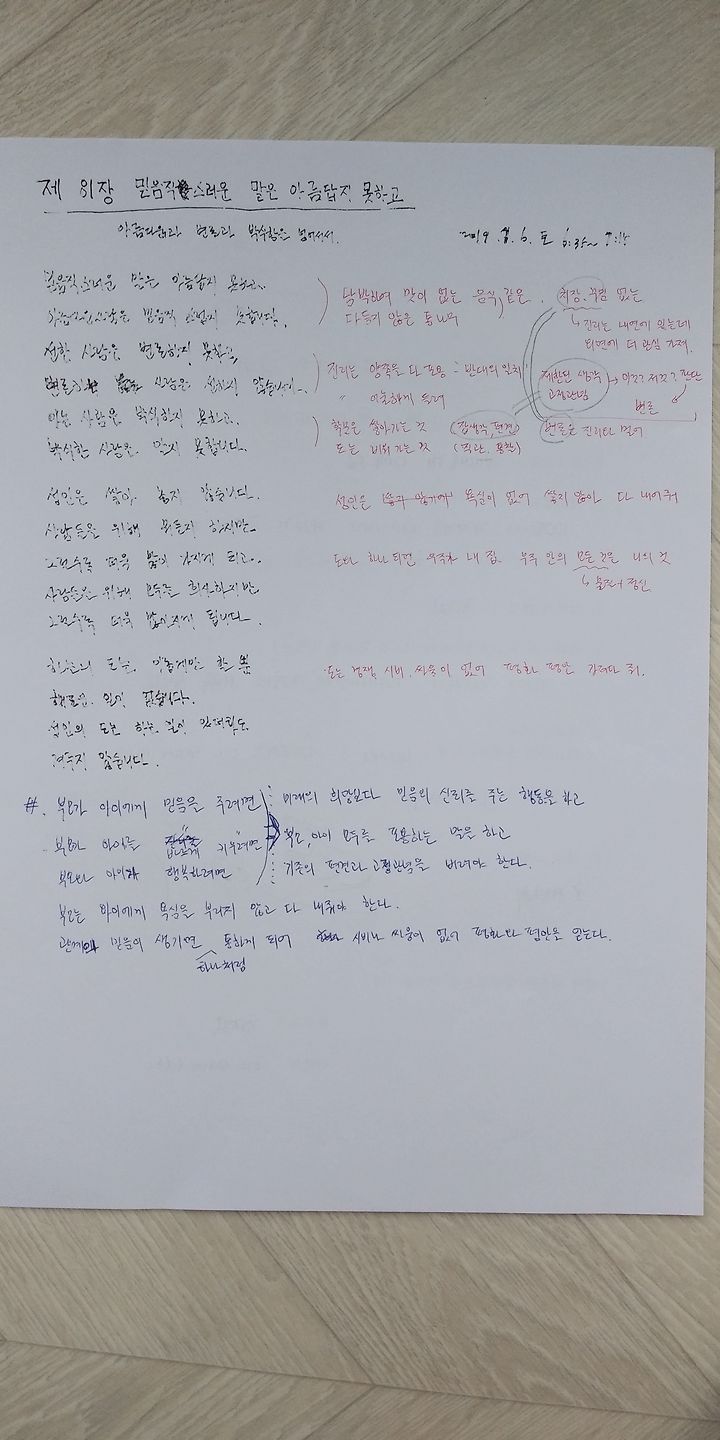 제 81장 믿음직스러운 말은 아름답지 못하고
아름다움과 변론과 박식함을 넘어서서.
2019. 6. 토 6:35~ 7:15
믿음직스러운 말은 아름답지 못하고,
아름다운 말은 믿음직스럽지 못합니다.
선한 사람은 변론하지 못하고,
변론하는 사람은 선하지 않습니다.
아는 사람은 박식하지 못하고,
박식한 사람은 알지 못합니다.
성인은 쌓아 놓지 않습니다.
사람들을 위해 뭐든지 하지만
그럴수록 더욱 많이 가지게 되고,
사람들을 위해 모두를 희사하지만
그럴수록 더욱 많아지게 됩니다.
하늘의 도는 이롭게만 할 뿐
해로운 일이 없습니다.
성인의 도는 하는 일이 있더라도
겨루지 않습니다.
담박하여 맛이 없는 음식 같은, 치장, 꾸밈 없는
다듬지 않은 통나무
↳ 진리는 내면에 있는데
외면에 더 관심 가져.
진리는 양쪽을 다 포용 - 반대의 일치
〃 어눌하게 들려
제한된 생각 → 이것? 저것? 판단
고정관념
변론
학문은 쌓아가는 것 (잡생각, 편견) 변론은 진리와 멀어
도는 비워가는 것 (직관, 통찰)
성인은 욕심이 없어 쌓지 않아 다 내어줘
도와 하나 되면 우주가 내 집. 우주 안의 모든 것은 나의 것
↳ 물질+정신
도는 경쟁, 시비, 싸움이 없어 평화 평안 가져다 줘.
#. 부모가 아이에게 믿음을 주려면 미래의 희망보다 믿음의 신뢰를 주는 행동을 하고
부모가 아이를 키우려면 부모, 아이 모두를 포용하는 말을 하고
부모와 아이가 행복하려면 기존의 편견과 고정관념을 버려야 한다.
부모는 아이에게 욕심을 부리지 않고 다 내줘야 한다.
관계에 믿음이 생기면 통하게 되어 시비나 싸움이 없어 평화와 평안을 얻는다.
하나처럼